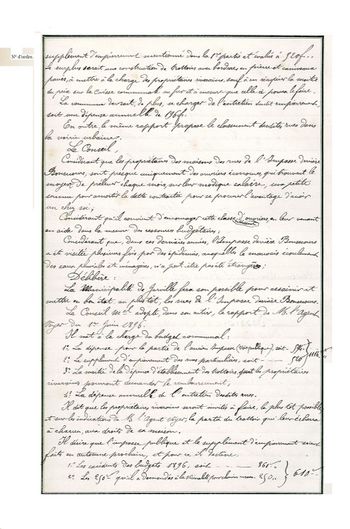 N° d'ordre.
supplément d'empierrement mentionné dans la 1re partie et évalué à 520f..
Le surplus serait une construction de trottoirs avec bordures en pierre et caniveaux
pavés, à mettre à la charge des propriétaires riverains, sauf à en récupérer la moitié
du prix sur la Caisse communale au fur et à mesure que elle le pourra faire.
La commune devrait, de plus, se charger de l'entretien dudit empierrement,
soit une dépense annuelle de
En outre, le même rapport propose le classement desdites rues dans
la voirie urbaine.
Le Conseil,
Considérant que les propriétaires des maisons des rues de l'Impasse derrière
Bonsecours, sont presque uniquement des ouvriers économes qui trouvent le
moyen de prélever chaque mois, sur leur modique salaire, une petite
somme pour amortir la dette contractée pour se procurer l'avantage d'avoir
un chez soi;
Considérant qu'il convient d'encourager cette classe d'ouvriers en leur venant
en aide dans la mesure des ressources budgétaires;
Considérant que, dans ces dernières années, l'Impasse derrière Bonsecours
a été visitée plusieurs fois par des épidémies, auxquelles le mauvais écoulement
des eaux pluviales et ménagères, n'a peut-être pas été étranger;
Délibère:
La Municipalité de Jarville fera son possible pour assainir et
mettre en bon état au plus tôt, les rues de l'Impasse derrière Bonsecours.
Le Conseil Mal adopte dans son entier, le rapport de M. l'Agent
Voyer du 1er Juin 1896.
Il met à la charge du budget communal:
1° La dépense pour la partie de l'ancien Impasse soit
2° Le supplément d'empierrement des rues particulières, soit - - - 520
3° La moitié de la dépense d'établissement des trottoirs dont les propriétaires
riverains pourront demander le remboursement,
4° La dépense annuelle de l'entretien desdites rues.
Il dit que les propriétaires riverains seront invités à faire, le plus tôt possible
et sur les indications de M. l'Agent voyer, la partie du trottoir qui leur échoira
à chacun, au droit de sa maison.
Il désire que l'impasse publique et le supplément d'empierrement soient
faits en automne prochain, et pour ce il affecte:
1° Les excédents des budgets 1896, soit - - - 360f..
2° Les 250f qu'il a demandés à la prochain 250.. } 610f..